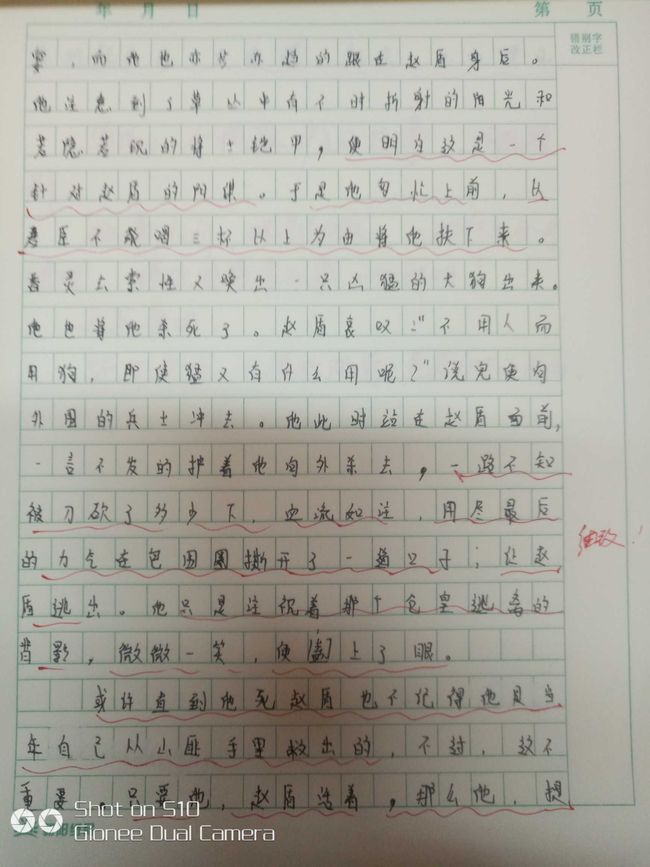 年 月 日 第 页
错别字
改正栏
，而他也亦步亦趋的跟在赵盾身后。
他注意到了草丛中有不时折射的阳光和
若隐若现的将士铠甲，便明白这是一个
针对赵盾的阴谋。于是他匆忙上前，以
君臣不能喝三杯以上为由将他扶下来。
晋灵公索性又唤出一只凶猛的大狗出来。
他也将他杀死了。赵盾哀叹："不用人而
用狗，即使猛又有什么用呢？"说完便向
外围的兵士冲去。他此时站在赵盾面前，
一言不发的护着他向外杀去，一路不知
被刀砍了多少下，血流如注，用尽最后
的力气在包围圈撕开了一道口子；让赵
盾逃出。他只是注视着那个仓皇逃离的
背影，微微一笑，便[阖]上了眼。
或许直到他死赵盾也不记得他是当
年自己从山匪手里救出的，不过，这不
重要，只要他，赵盾活着，那么他，想
细致！
Shot on S10
Gionee Dual Camera